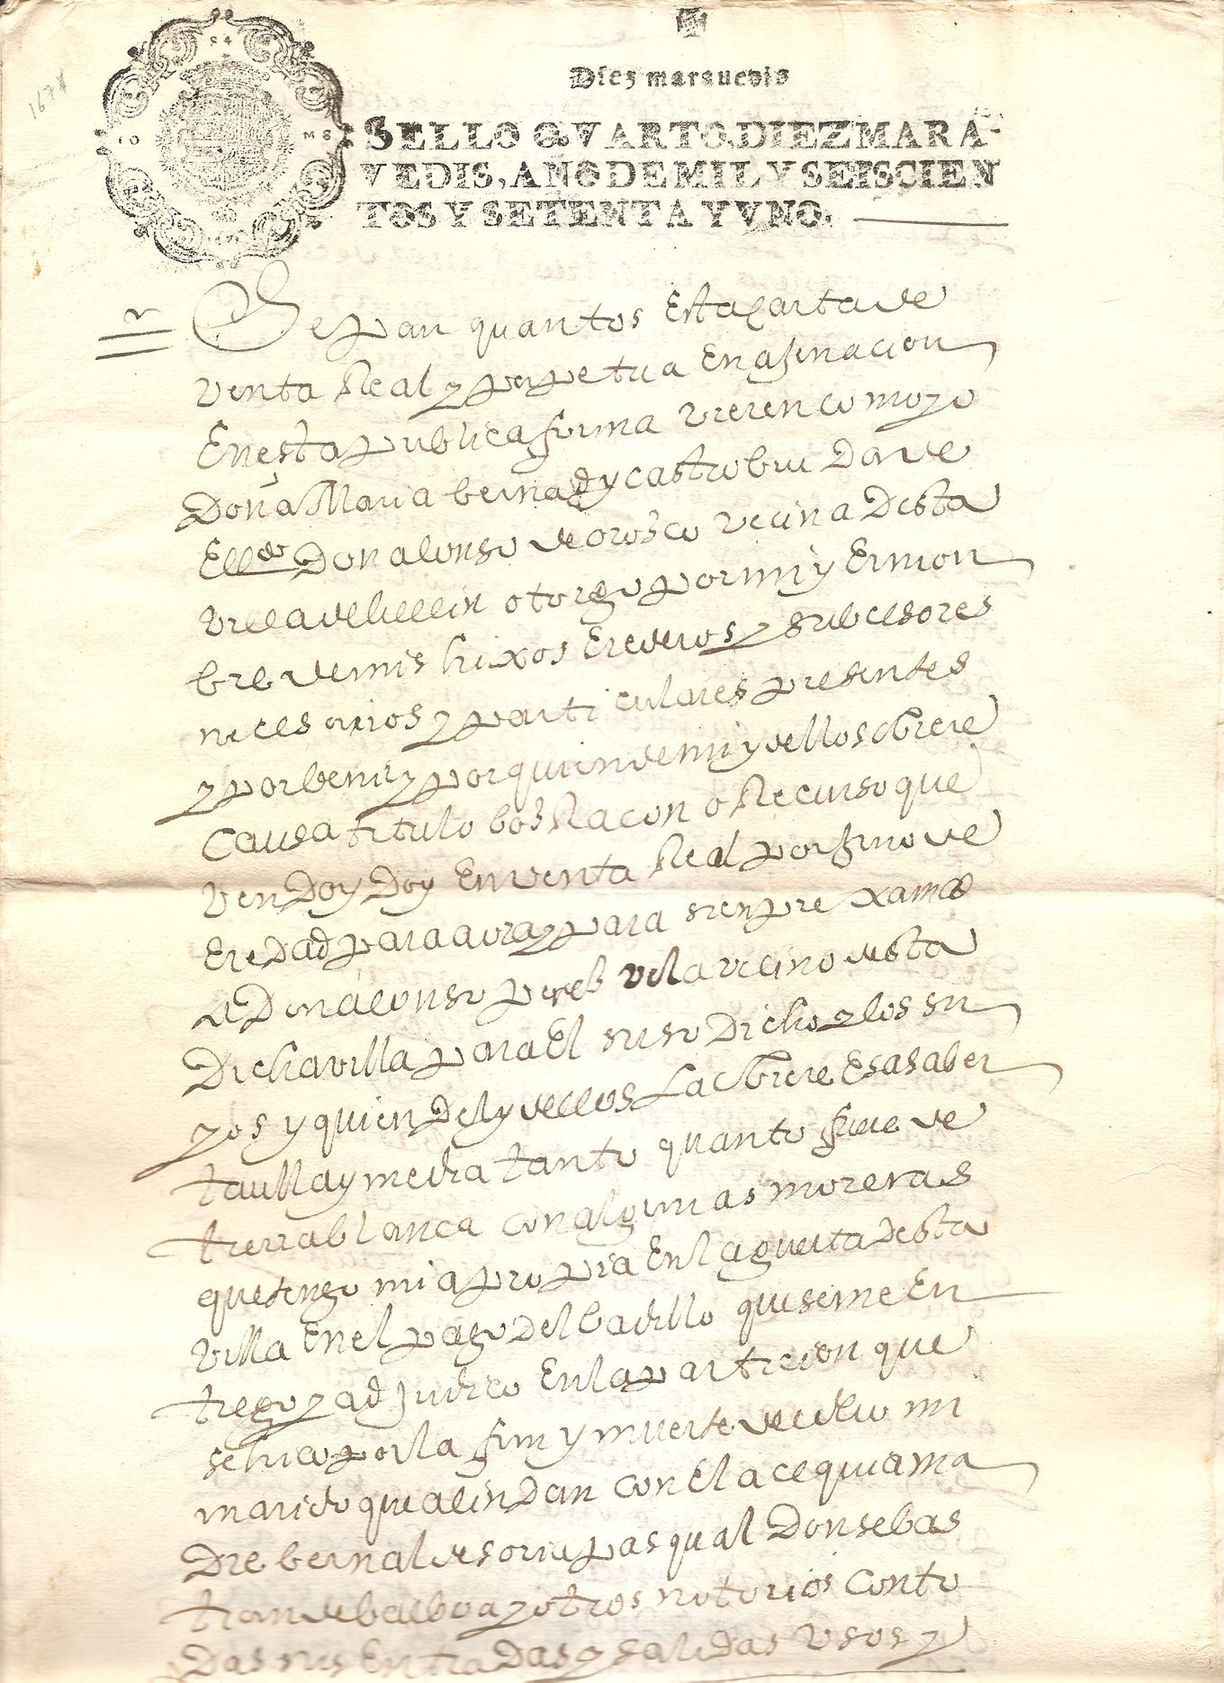 1671
Diez marauedis
SELLO QVARTO, DIEZ MARA-
VEDIS, AÑO DE MIL Y SEISCIEN
TOS Y SETENTA Y VNO.
Sepan quantos Esta carta de
Venta Real y perpetua Enajenacion
En esta publica forma vieren como yo
Doña Maria bernal y castro biuda de
El lldo Don alonso de orosco vecina Desta
Villa de hellin otorgo por mi y En non
bre de mis hixos Erederos y subcesores
necesarios y particulares presentes
y por benir y por quien de mi y dellos obiere
Causa titulo bos Racon o Recurso que
Vendo y Doy En venta Real por juro de
Eredad para aora y para sienpre xamas
a Don alonso peres vela vecino desta
Dicha villa para El suso Dicho y los su
yos y quien Del y dellos La obiere Es a saber
taulla y media tanto quanto fuere de
tierra blanca con algunas moreras
que tengo mia propia En la guerta Desta
Villa En el pago Del badillo que se me En
trego y adjudico En la particion que
se hico por la fin y muerte de dicho mi
marido que alindan con El acequia ma
Dre bernal de soria pasqual Don sebas
tian de balboa y otros notorios con to
Das sus Entradas y salidas Vsos y